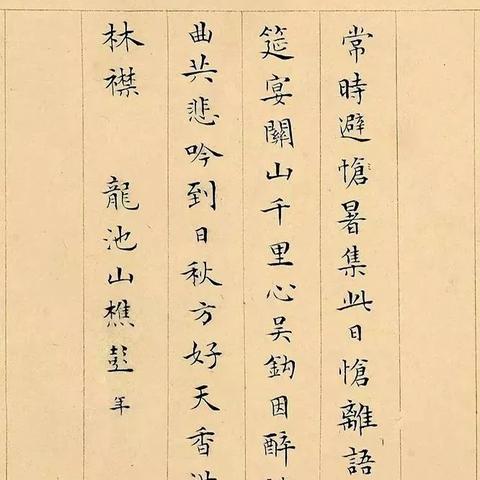 常時避愴暑集此日愴離語
筵宴關山千里心吳鉤因醉
曲共悲吟到日秋方好天香
林襟 龍池山樵彭年